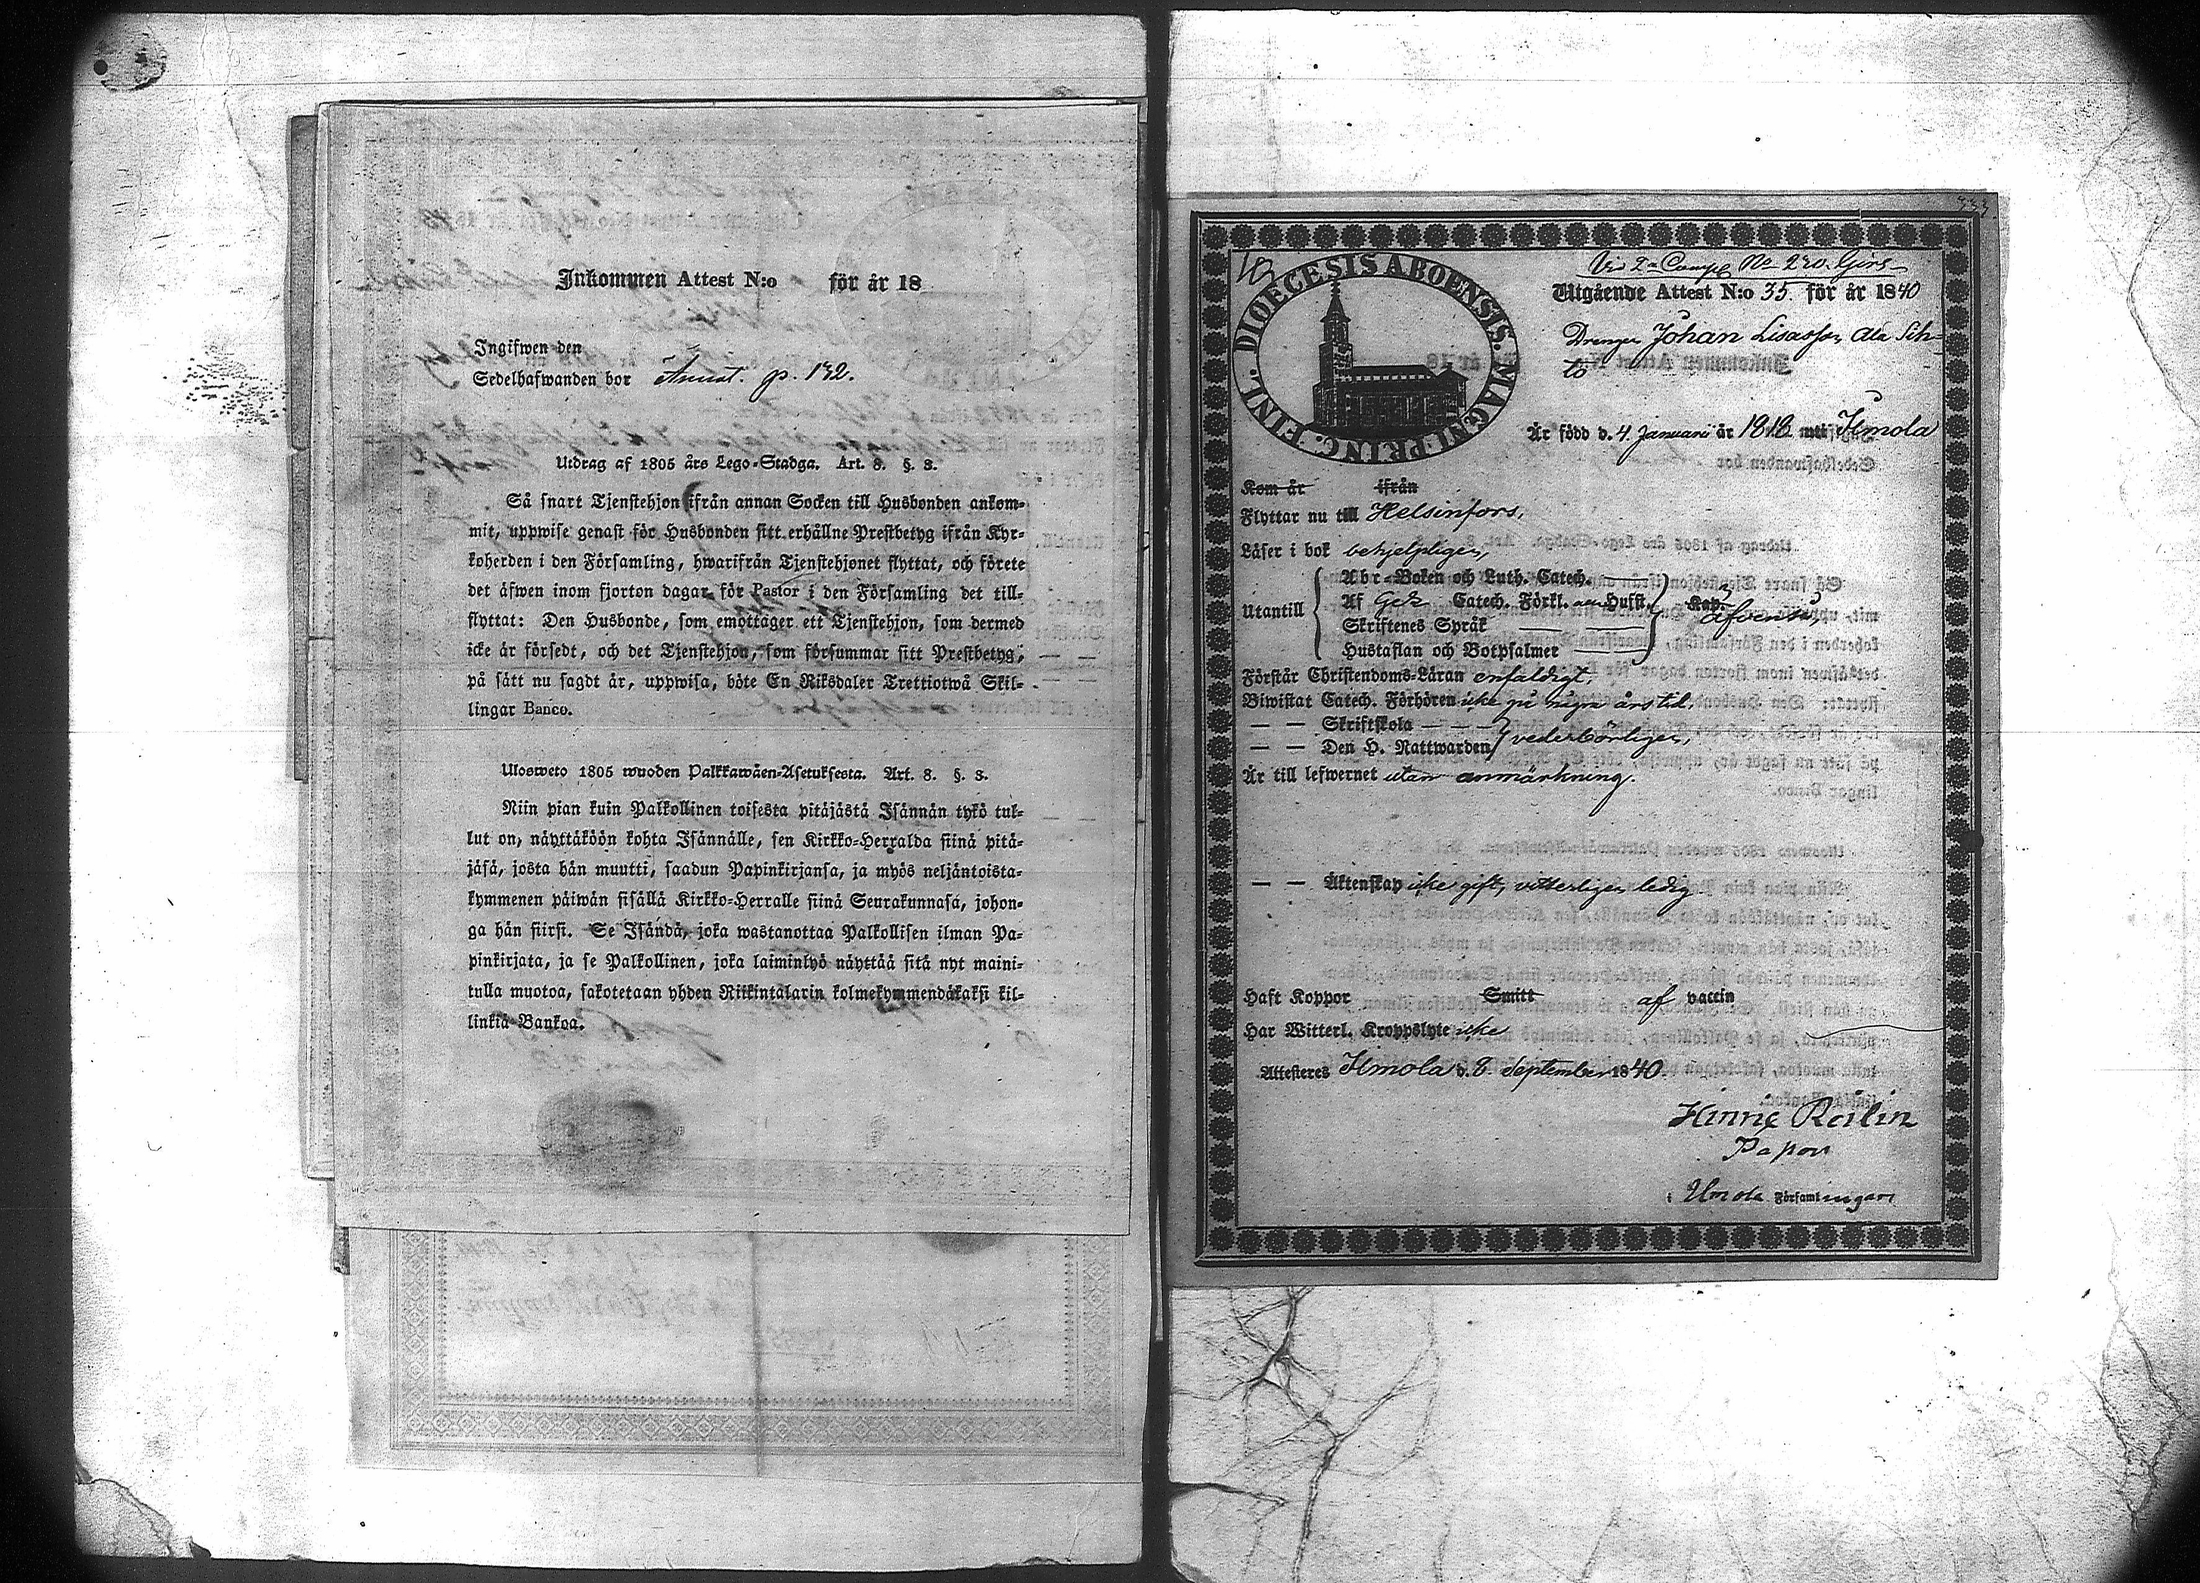 Inkommen Attest N:o för år 18
Ingifwen den
Sedelhafwanden bor Annot. p. 132.
Utdrag af 1805 års Lego-Stadga. Art. 8. §. 3.
Så snart Tjenstehjon ifrån annan Socken till Husbonden ankom-
mit, uppwise genast för Husbonden sitt erhållne Prestbetyg ifrån Kyr-
koherden i den Församling, hwarifrån Tjenstehjonet flyttat, och förete
det äfwen inom fjorton dagar för Pastor i den Församling det till-
flyttat: Den Husbonde, som emottager ett Tjenstehjon, som dermed
icke är försedt, och det Tjenstehjon, som försummar sitt Prestbetyg,
på sätt nu sagdt är, uppwisa, böte En Riksdaler Trettiotwå Skil-
lingar Banco.
Ulosweto 1805 wuoden Palkkawäen-Asetuksesta. Art. 8. §. 3.
Niin pian kuin Palkollinen toisesta pitäjästä Isännän tykö tul-
lut on, näyttäköön kohta Isännälle, sen Kirkko-Herralda siinä pitä-
jäsä, josta hän muutti, saadun Papinkirjansa, ja myös neljäntoista-
kymmenen päiwän sisällä Kirkko-Herralle siinä Seurakunnasa, johon-
ga hän siirsi. Se Isändä, joka wastanottaa Palkollisen ilman Pa-
pinkirjata, ja se Palkollinen, joka laiminlyö näyttää sitä nyt maini-
tulla muotoa, sakotetaan yhden Riikintalarin kolmekymmendäkaksi kil-
linkiä Bankoa.
333.
DIOECESIS ABOENSIS. MAGNI PRINC. FINL.
No 220.
Utgående Attest N:o 35 för år 1840
Drengen Johan Lisasson Ala Sih-
to
Är född d. 4 Januari år 1818 uti Ilmola
Kom år ifrån
Flyttar nu till Helsinfors,
Läser i bok behjelpligen,
Utantill
Abc-Boken och Luth. Catech.
Af Gez. Catech. Förkl. Hufst. Kap.
Skriftenes Språk
Hustaflan och Botpsalmer
äfvenså,
Förstår Christendoms-Läran enfaldigt,
Biwistat Catech. Förhören icke på några års tid,
— — Skriftskola — — —
— — Den H. Nattwarden vederbörligen,
Är till lefwernet utan anmärkning.
— — Äktenskap icke gift, vitterligen ledig
Haft Koppor Smitt af vaccin
Har Witterl. Kroppslyte icke
Attesteres Ilmola d. 8. September 1840.
i Ilmola Församlingar